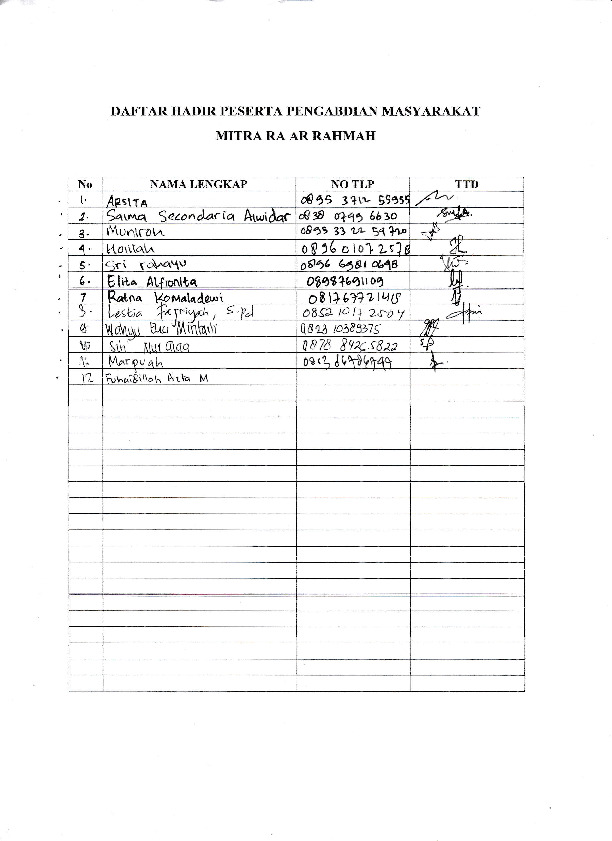 DAFTAR HADIR PESERTA PENGABDIAN MASYARAKAT
MITRA RA AR RAHMAH
No NAMA LENGKAP NO TLP TTD
1. ARSITA 0895 3712 55955
2. Saima Secondaria Alwidar 0838 0799 6630
3. Muniroh 0895 33 22 59720
4. Holilah 0896 0107 2578
5. Sri rahayu 0896 6981 0698
6. Elita Alfionita 08987691109
7 Ratna Komaladewi 081767721415
8. Lestia Fitriyah, S.Pd 0852 1017 2504
9 Wahyu 0823 10389375
10 Siti Nur 0878 8426.5822
11. Marpuah 0813 86986999
12 Azta M